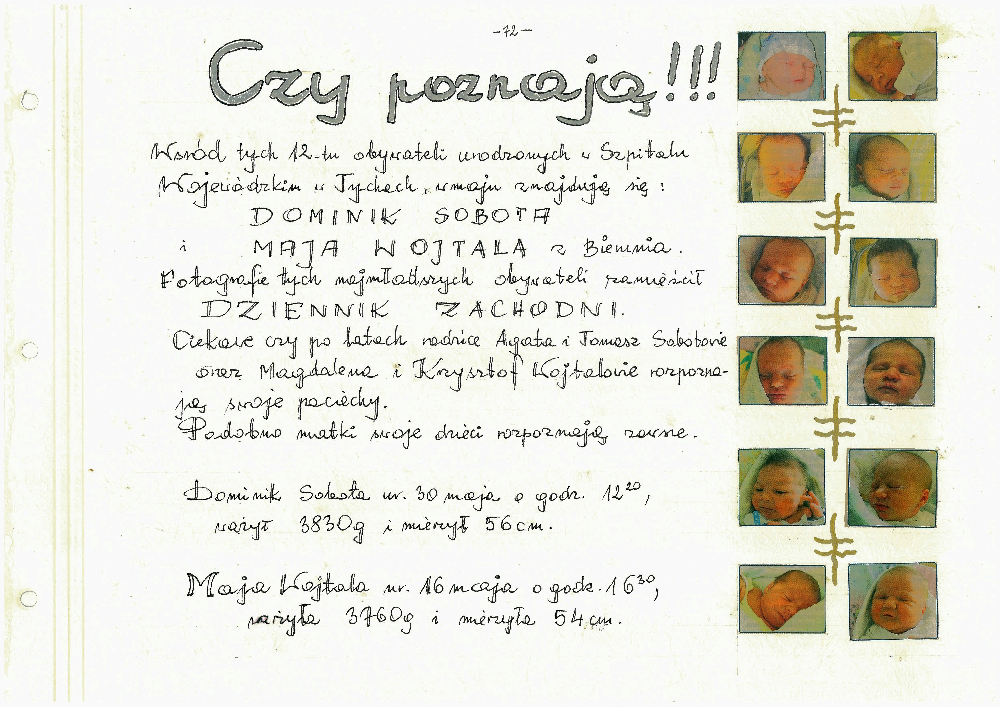 -72-
Czy poznają!!!
Wśród tych 12-tu obywateli urodzonych w Szpitalu
Wojewódzkim w Tychach, w maju znajdują się :
DOMINIK SOBOTA
i MAJA WOJTALA z Bierunia.
Fotografie tych najmłodszych obywateli zamieścił
DZIENNIK ZACHODNI.
Ciekawe czy po latach rodzice Agata i Tomasz Sobotowie
oraz Magdalena i Krzysztof Wojtalowie rozpozna-
ją swoje pociechy.
Podobno matki swoje dzieci rozpoznają zawsze.
Dominik Sobota ur. 30 maja o godz. 12²⁰,
ważył 3830g i mierzył 56cm.
Maja Wojtala ur. 16 maja o godz. 16³⁰,
ważyła 3760g i mierzyła 54cm.